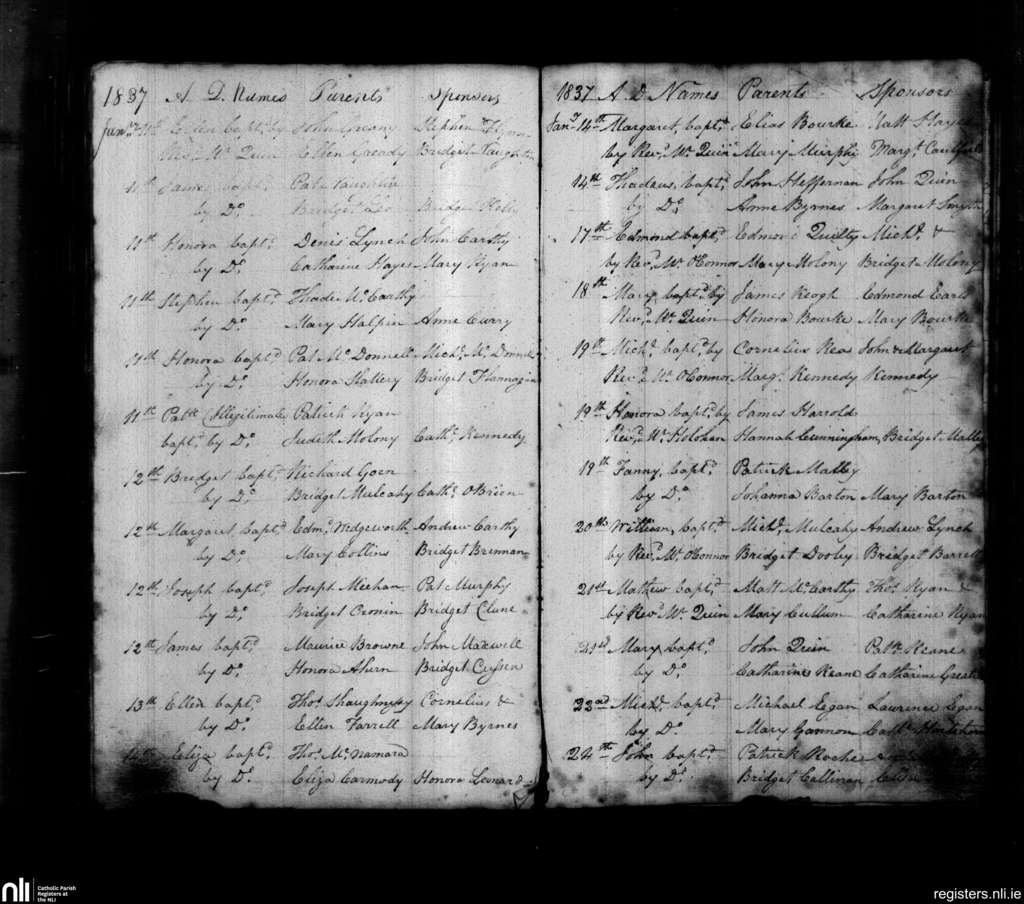 1837 A. D. Names Parents Sponsors
Jany. 11th Ellen bapt. by John Stephen
Revd. Mr. Quin Ellen Gready Bridget Naughton
11th bapt. Pat
by Do. Bridget Bridget
11th Honora bapt. Denis Lynch John Carthy
by Do. Catharine Hayes Mary Ryan
11th Stephen bapt. Thade McCarthy
by Do. Mary Halpin Anne Curry
11th Honora bapt. Pat McDonnell Michl. McDonnell
by Do. Honora Slattery Bridget Flannagan
11th Patk. (Illegitimate) Patrick Ryan
bapt. by Do. Judith Molony Cathe. Kennedy
12th Bridget bapt. Richard Goen
by Do. Bridget Mulcahy Cathe. OBrien
12th Margaret baptd. Edmd. Wedgeworth Andrew Carthy
by Do. Mary Collins Bridget Brennan
12th Joseph baptd. Joseph Meehan Pat Murphy
by Do. Bridget Cronin Bridget Clune
12th James baptd. Maurice Browne John Maxwell
by Do. Honora Ahern Bridget Cussen
13th Ellen bapt. Thos. Shaughnessy Cornelius &
by Do. Ellen Farrell Mary Byrnes
14th Eliza baptd. Thos. McNamara
by Do. Eliza Carmody Honora Leonard
1837 A. D. Names Parents Sponsors
Jany. 14th Margaret, baptd. Elias Bourke Matt Hayes
by Revd. Mr. Quin Mary Murphy Margt.
14th Thadeus, baptd. John Heffernan John Quin
by Do. Anne Byrnes Margaret Smyth
17th Edmond baptd. Edmond Quilty Michl. &
by Revd. Mr. OConnor Mary Molony Bridget Molony
18th Mary, baptd. by James Keogh Edmond Earls
Revd. Mr. Quin Honora Bourke Mary Bourke
19th Michl. baptd. by Cornelius Reas John & Margaret
Revd. Mr. OConnor Margt. Kennedy Kennedy
19th Honora baptd. by James Harrold
Revd. Mr. Holohan Hannah Cunningham, Bridget Malley
19th Fanny, baptd. Patrick Malley
by Do. Johanna Barton Mary Barton
20th William, baptd. Michl. Mulcahy Andrew Lynch
by Revd. Mr. OConnor Bridget Dooley Bridget Barrett
21st Mathew baptd. Matt McCarthy Thos. Ryan &
by Revd. Mr. Quin Mary Cullum Catharine Ryan
21st Mary baptd. John Quin Patk. Keane
by Do. Catharine Keane Catharine
22nd Michl. baptd. Michael Egan Lawrence Egan
by Do. Mary Gannon Cathe.
24th John baptd. Patrick Roche
by Do. Bridget Callinan
nli Catholic Parish
Registers at
the NLI
registers.nli.ie